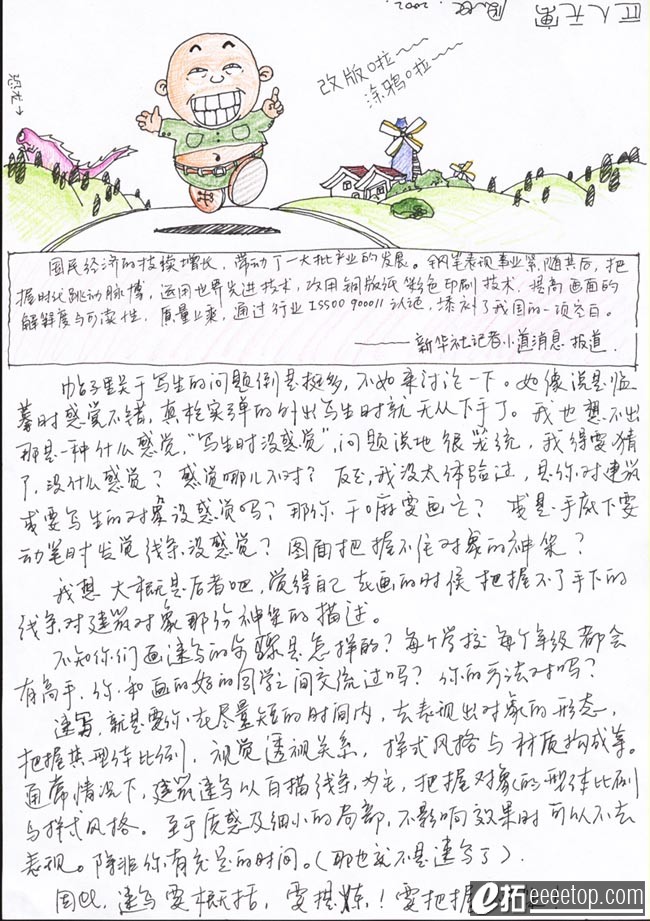 改版啦~~~
涂鸦啦~~~
恐龙→
国民经济的持续增长，带动了一大批产业的发展。钢笔表现事业紧随其后，把
握时代跳动脉搏，运用世界先进技术，改用铜版纸彩色印刷技术，提高画面的
解释度与可读性，质量上乘，通过行业ISSOO 900011认证，填补了我国的一项空白。
——新华社记者小道消息 报道.
帖子里关于写生的问题倒是挺多，不如来讨论一下。她像说是临
摹时感觉不错，真枪实弹的外出写生时就无从下手了。我也想不出
那是一种什么感觉，“写生时没感觉”，问题说地很笼统，我得要猜
了，没什么感觉？感觉哪儿不对？反正，我没太体验过，是你对建筑
或要写生的对象没感觉吗？那你干嘛要画它？或是手底下要
动笔时发觉线条没感觉？图面把握不住对象的神采？
我想大概是后者吧，觉得自己在画的时候把握不了手下的
线条对建筑对象那份神采的描述。
不知你们画速写的步骤是怎样的？每个学校每个年级都会
有高手，你和画的好的同学之间交流过吗？你的方法对吗？
速写，就是要你在尽量短的时间内，去表现出对象的形态，
把握其型体比例，视觉透视关系，样式风格与材质构成等。
通常情况下，建筑速写以白描线条为主，把握对象的型体比例
与样式风格。至于质感及细小的局部，不影响效果时可以不去
表现。除非你有充足的时间。（那也就不是速写了）.
因此，速写要概括，要提炼！要把握
e拓eeeetop.com